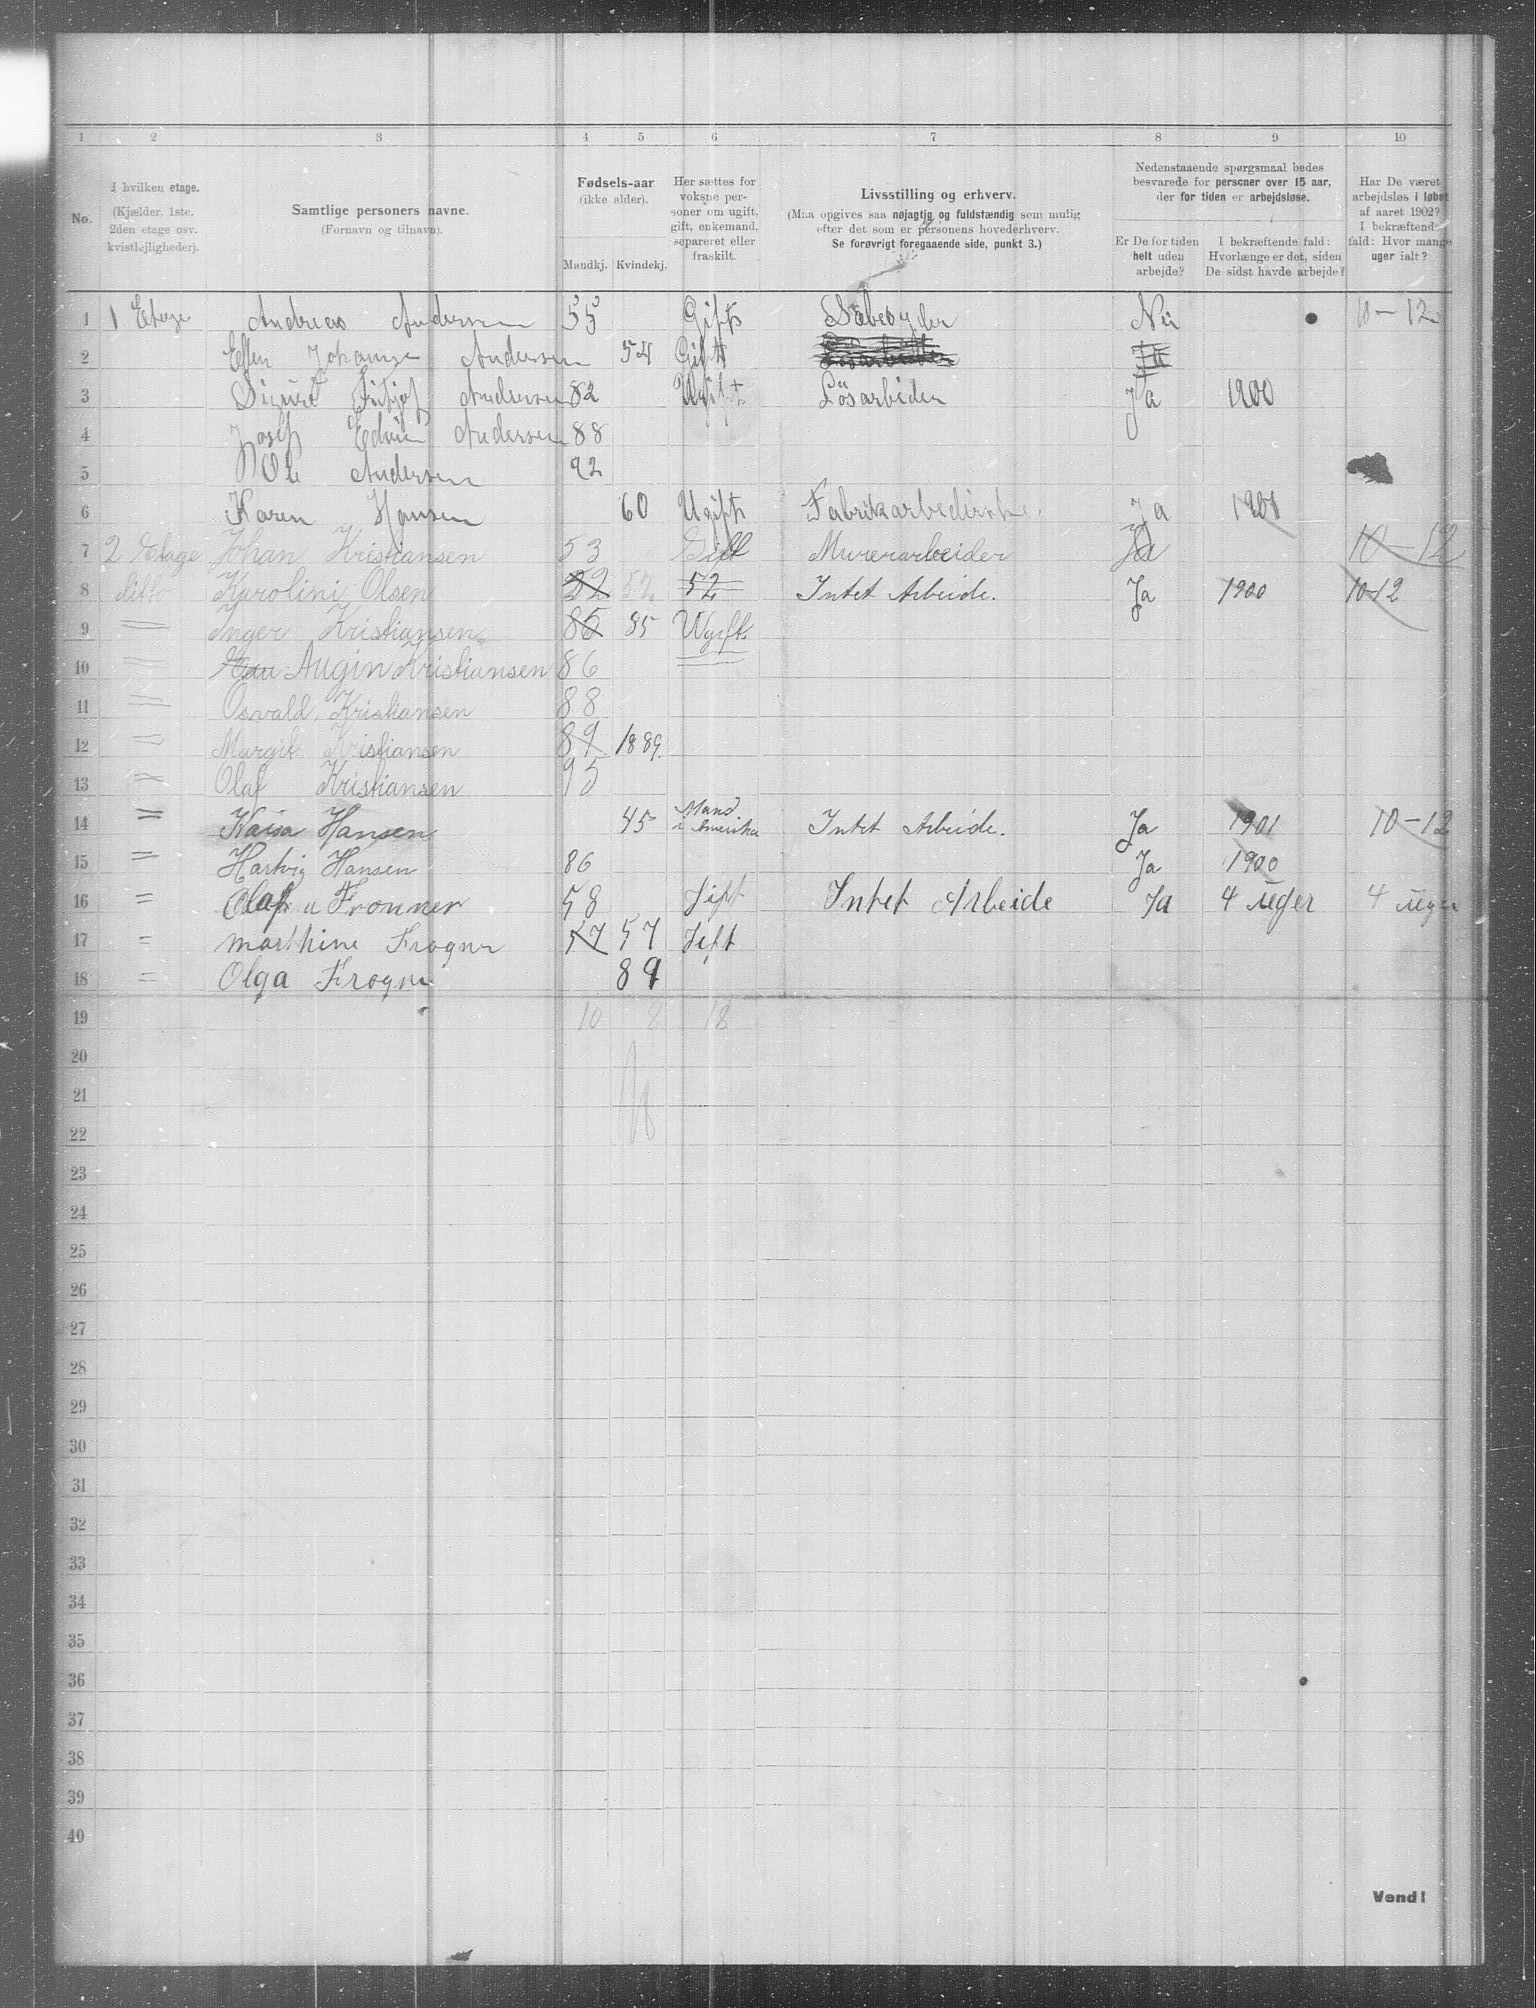 1 2 3 4 5 6 7 8 9 10
No.
I hvilken etage.
(Kjælder, 1ste,
2den etage osv.
kvistlejligheder).
Samtlige personers navne.
(Fornavn og tilnavn).
Fødsels-aar
(ikke alder).
Mandkj. Kvindekj.
Her sættes for
voksne per-
soner om ugift,
gift, enkemand,
separeret eller
fraskilt.
Livsstilling og erhverv.
(Maa opgives saa nøjagtig og fuldstændig som mulig
efter det som er personens hovederhverv.
Se forøvrigt foregaaende side, punkt 3.)
Nedenstaaende spørgsmaal bedes
besvarede for personer over 15 aar,
der for tiden er arbejdsløse.
Er De for tiden
helt uden
arbejde?
I bekræftende fald:
Hvorlænge er det, siden
De sidst havde arbejde?
Har De været
arbejdsløs i løbet
af aaret 1902?
I bekræftende
fald: Hvor mange
uger ialt?
1 1 Etage Andreas Andersen 55 Gift Nei 10-12
2 Andersen 54 Gift
3 Sigurd Andersen 82 Ugift Lösarbeider Ja 1900
4 Josef Edvin Andersen 88
5 Ole Andersen 92
6 Karen Hansen 60 Ugift Ja 1901
7 2 Etage Johan Kristiansen 53 Gift Murerarbeider Ja 10-12
8 ditto Karolini Olsen 52 52 52 Intet Arbeide. Ja 1900 10-12
9 = Inger Kristiansen 85 85 Ugift
10 = Augin Kristiansen 86
11 = Osvald Kristiansen 88
12 = Margit Kristiansen 89 1889.
13 = Olaf Kristiansen 95
14 = Kaisa Hansen 45 Mand i Amerika Intet Arbeide. Ja 1901 10-12
15 = Hartvig Hansen 86 Ja 1900
16 = Olaf 58 Gift Intet Arbeide Ja 4 uger 4 uger
17 = Marthine Frogner 57 57 Gift
18 = Olga Frogner 89
19 10 8 18
20
21
22
23
24
25
26
27
28
29
30
31
32
33
34
35
36
37
38
39
40
Vend!